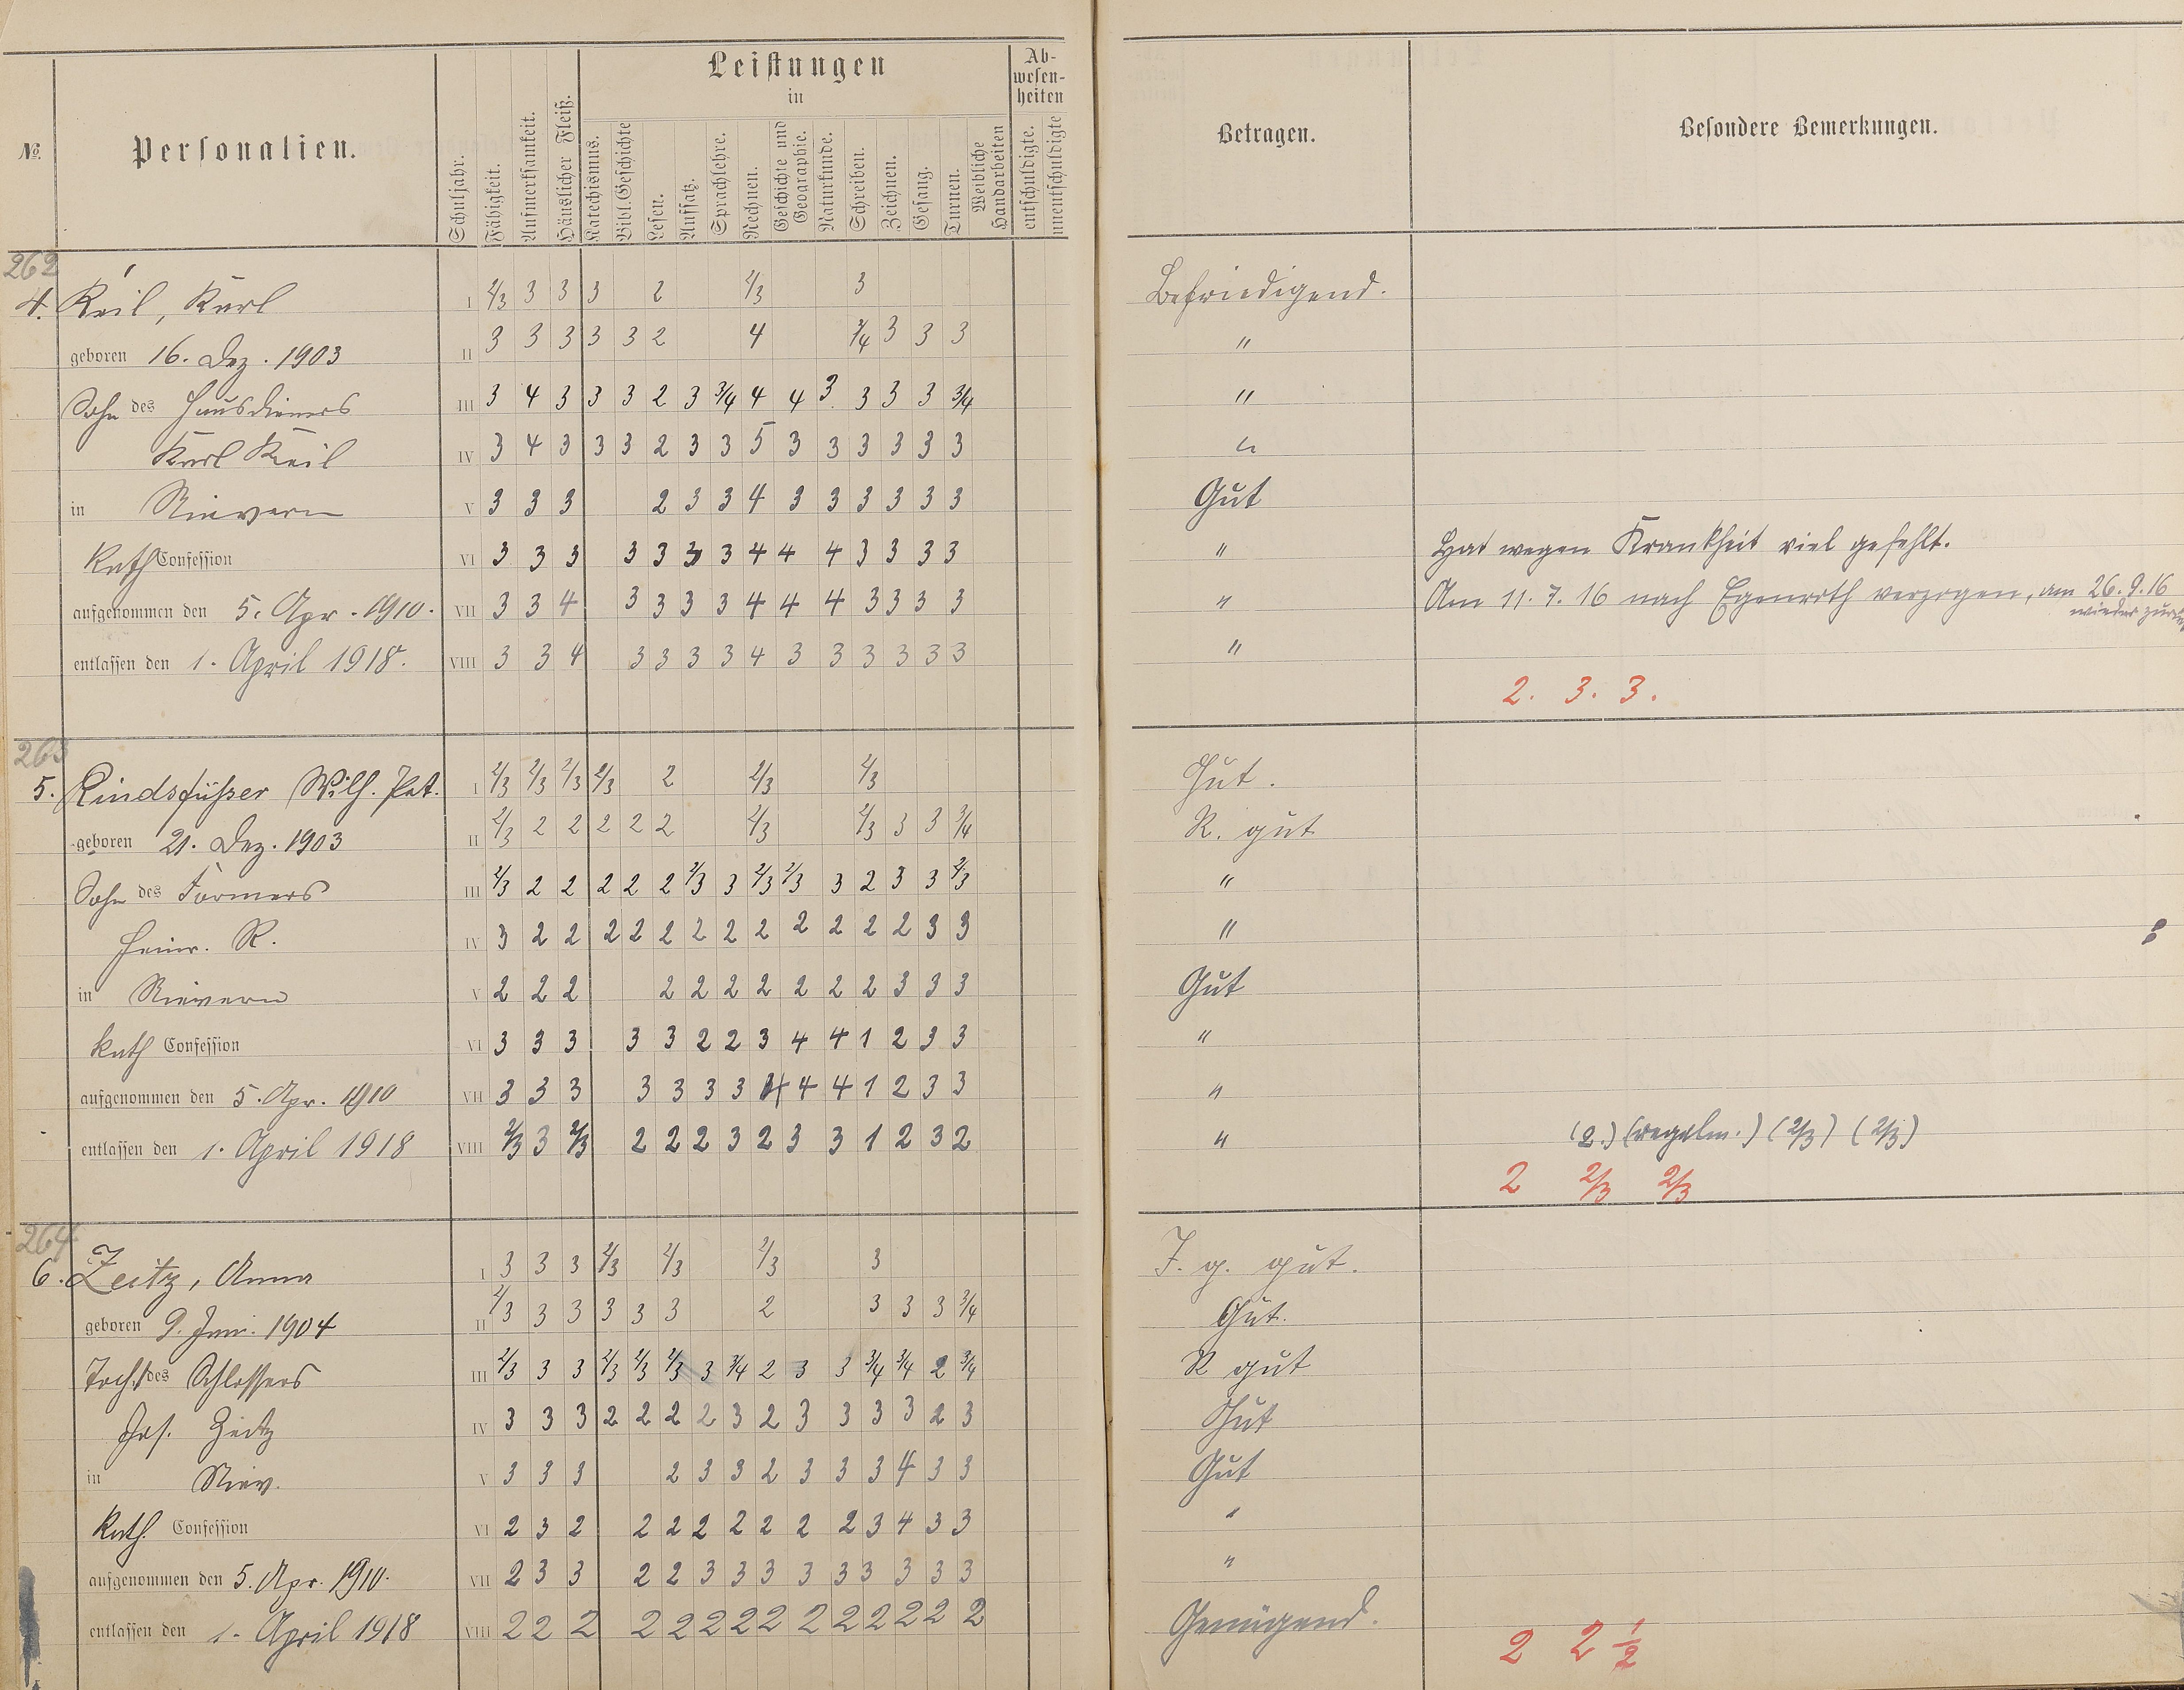 Leistungen
in
Ab-
wesen-
heiten
№
Personalien.
Schuljahr.
Fähigkeit.
Aufmerksamkeit.
Häuslicher Fleiß.
Katechismus.
Bibl. Geschichte
Lesen.
Aufsatz.
Sprachlehre.
Rechnen.
Geschichte und
Geographie.
Naturkunde.
Schreiben.
Zeichnen.
Gesang.
Turnen.
Weibliche
Handarbeiten
entschuldigte.
unentschuldigte
Betragen.
Besondere Bemerkungen.
262
4. Keil, Karl I 2/3 3 3 3 2 2/3 3 Befriedigend.
geboren 16. Dez. 1903 II 3 3 3 3 3 2 4 3/4 3 3 3 "
Sohn des Hausdieners III 3 4 3 3 3 2 3 3/4 4 4 3 3 3 3 3/4 "
Karl Keil IV 3 4 3 3 3 2 3 3 5 3 3 3 3 3 3 "
in Nievern V 3 3 3 2 3 3 4 3 3 3 3 3 3 Gut
Kath Confession VI 3 3 3 3 3 3 3 4 4 4 3 3 3 3 " Hat wegen Krankheit viel gefehlt.
aufgenommen den 5. Apr. 1910. VII 3 3 4 3 3 3 3 4 4 4 3 3 3 3 " Am 11. 7. 16 nach Egenroth verzogen, am 26. 9. 16
wieder zurück
entlassen den 1. April 1918. VIII 3 3 4 3 3 3 3 4 3 3 3 3 3 3 "
2. 3. 3.
263
5. Rindsfüßer Wilh. Pet. I 2/3 2/3 2/3 2/3 2 2/3 2/3 Gut.
geboren 21. Dez. 1903 II 2/3 2 2 2 2 2 2/3 2/3 3 3 3/4 R. gut
Sohn des Formers III 2/3 2 2 2 2 2 2/3 3 2/3 2/3 3 2 3 3 2/3 "
Heinr. R. IV 3 2 2 2 2 2 2 2 2 2 2 2 2 3 3 "
in Nievern V 2 2 2 2 2 2 2 2 2 2 3 3 3 Gut
Kath Confession VI 3 3 3 3 3 2 2 3 4 4 1 2 3 3 "
aufgenommen den 5. Apr. 1910 VII 3 3 3 3 3 3 3 4 4 4 1 2 3 3 "
entlassen den 1. April 1918 VIII 2/3 3 2/3 2 2 2 3 2 3 3 1 2 3 2 " (2.) (regelm.) (2/3) (2/3)
2 2/3 2/3
264
6. Zeitz, Anna I 3 3 3 2/3 2/3 2/3 3 I. g. gut.
geboren 9. Jan. 1904 II 2/3 3 3 3 3 3 2 3 3 3 3/4 Gut.
Tocht des Schlossers III 2/3 3 3 2/3 2/3 2/3 3 3/4 2 3 3 3/4 3/4 2 3/4 R gut
Jos. Zeitz IV 3 3 3 2 2 2 2 3 2 3 3 3 3 2 3 Gut
in Niev. V 3 3 3 2 3 3 2 3 3 3 4 3 3 Gut
Kath. Confession VI 2 3 2 2 2 2 2 2 2 2 3 4 3 3 "
aufgenommen den 5. Apr. 1910. VII 2 3 3 2 2 3 3 3 3 3 3 3 3 3 "
entlassen den 1. April 1918 VIII 2 2 2 2 2 2 2 2 2 2 2 2 2 2 Genügend.
2 2 1/2